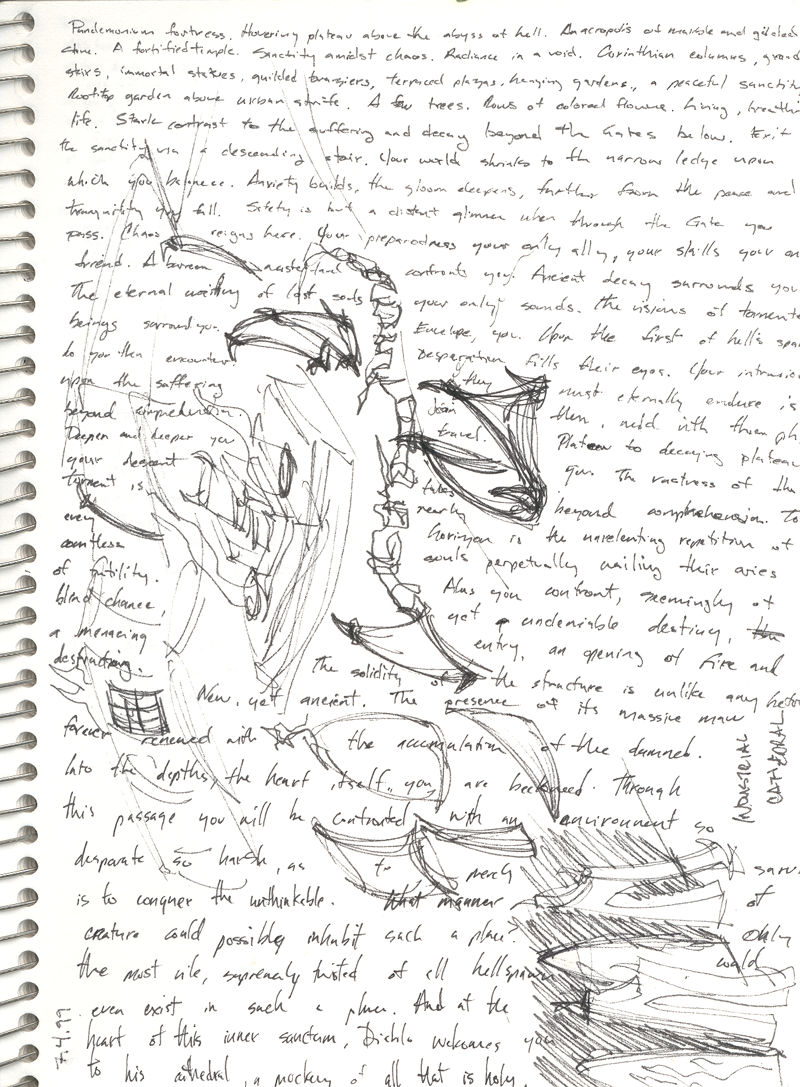 Pandemonium fortress. Hovering plateau above the abyss of hell. An acropolis of marble and gilded
stone. A fortified temple. Sanctity amidst chaos. Radiance in a void. Corinthian columns, grand
stairs, immortal statues, guilded braziers, terraced plazas, hanging gardens, a peaceful sanctity
Rooftop garden above urban strife. A few trees. Rows of colored flowers. Living, breathing
life. Stark contrast to the suffering and decay beyond the Gates below. Exit
the sanctity via a descending stair. Your world shrinks to the narrow ledge upon
which you balance. Anxiety builds, the gloom deepens, further from the peace and
tranquility you fall. Safety is but a distant glimmer when through the Gate you
pass. Chaos reigns here. Your preparedness your only ally, your skills your only
friend. A barren wasteland confronts you. Ancient decay surrounds you
The eternal wailing of lost souls your only sounds. The visions of tormented
beings surround you. Envelope, you. Upon the first of hell's spawn
do you then encounter. Desperation fills their eyes. Your intrusion
upon the suffering they must eternally endure is
beyond comprehension. Join them, and with them
Deeper and deeper you travel. Plateau to decaying plateau
your descent takes you. The vastness of the
torment is nearly beyond comprehension. To
every horizon is the unrelenting repetition of
countless souls perpetually wailing their cries
of futility. Alas you confront, seemingly of
blind chance, yet undeniable destiny,
a menacing entry, an opening of fire and
destruction. The solidity of the structure is unlike any before
New, yet ancient. The presence of its massive maw
forever renewed with the accumulation of the damned.
Into the depths, the heart itself, you are beckoned. Through
this passage you will be confronted with an environment so
desparate so harsh, as to merely
is to conquer the unthinkable. What manner of
creature could possibly inhabit such a place? Only
the most vile, supremely twisted of all hellspawn would
even exist in such a place. And at the
heart of this inner sanctum, Diablo welcomes you
to his cathedral, a mockery of all that is holy.
INDUSTRIAL
CATHEDRAL
7.4.97